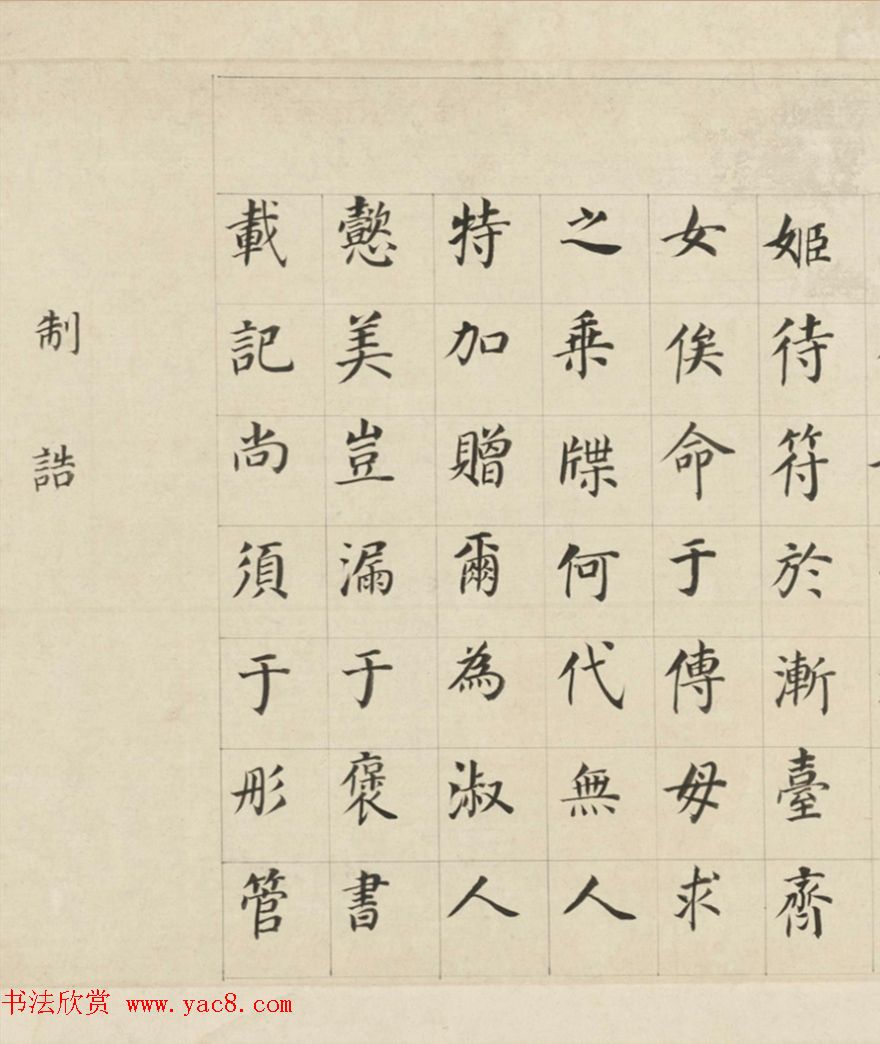 姬待符於漸臺齊
女俟命于傅母求
之乗牒何代無人
特加贈爾為淑人
懿美豈漏于褒書
載記尚須于彤管
制誥
书法欣赏 www.yac8.com